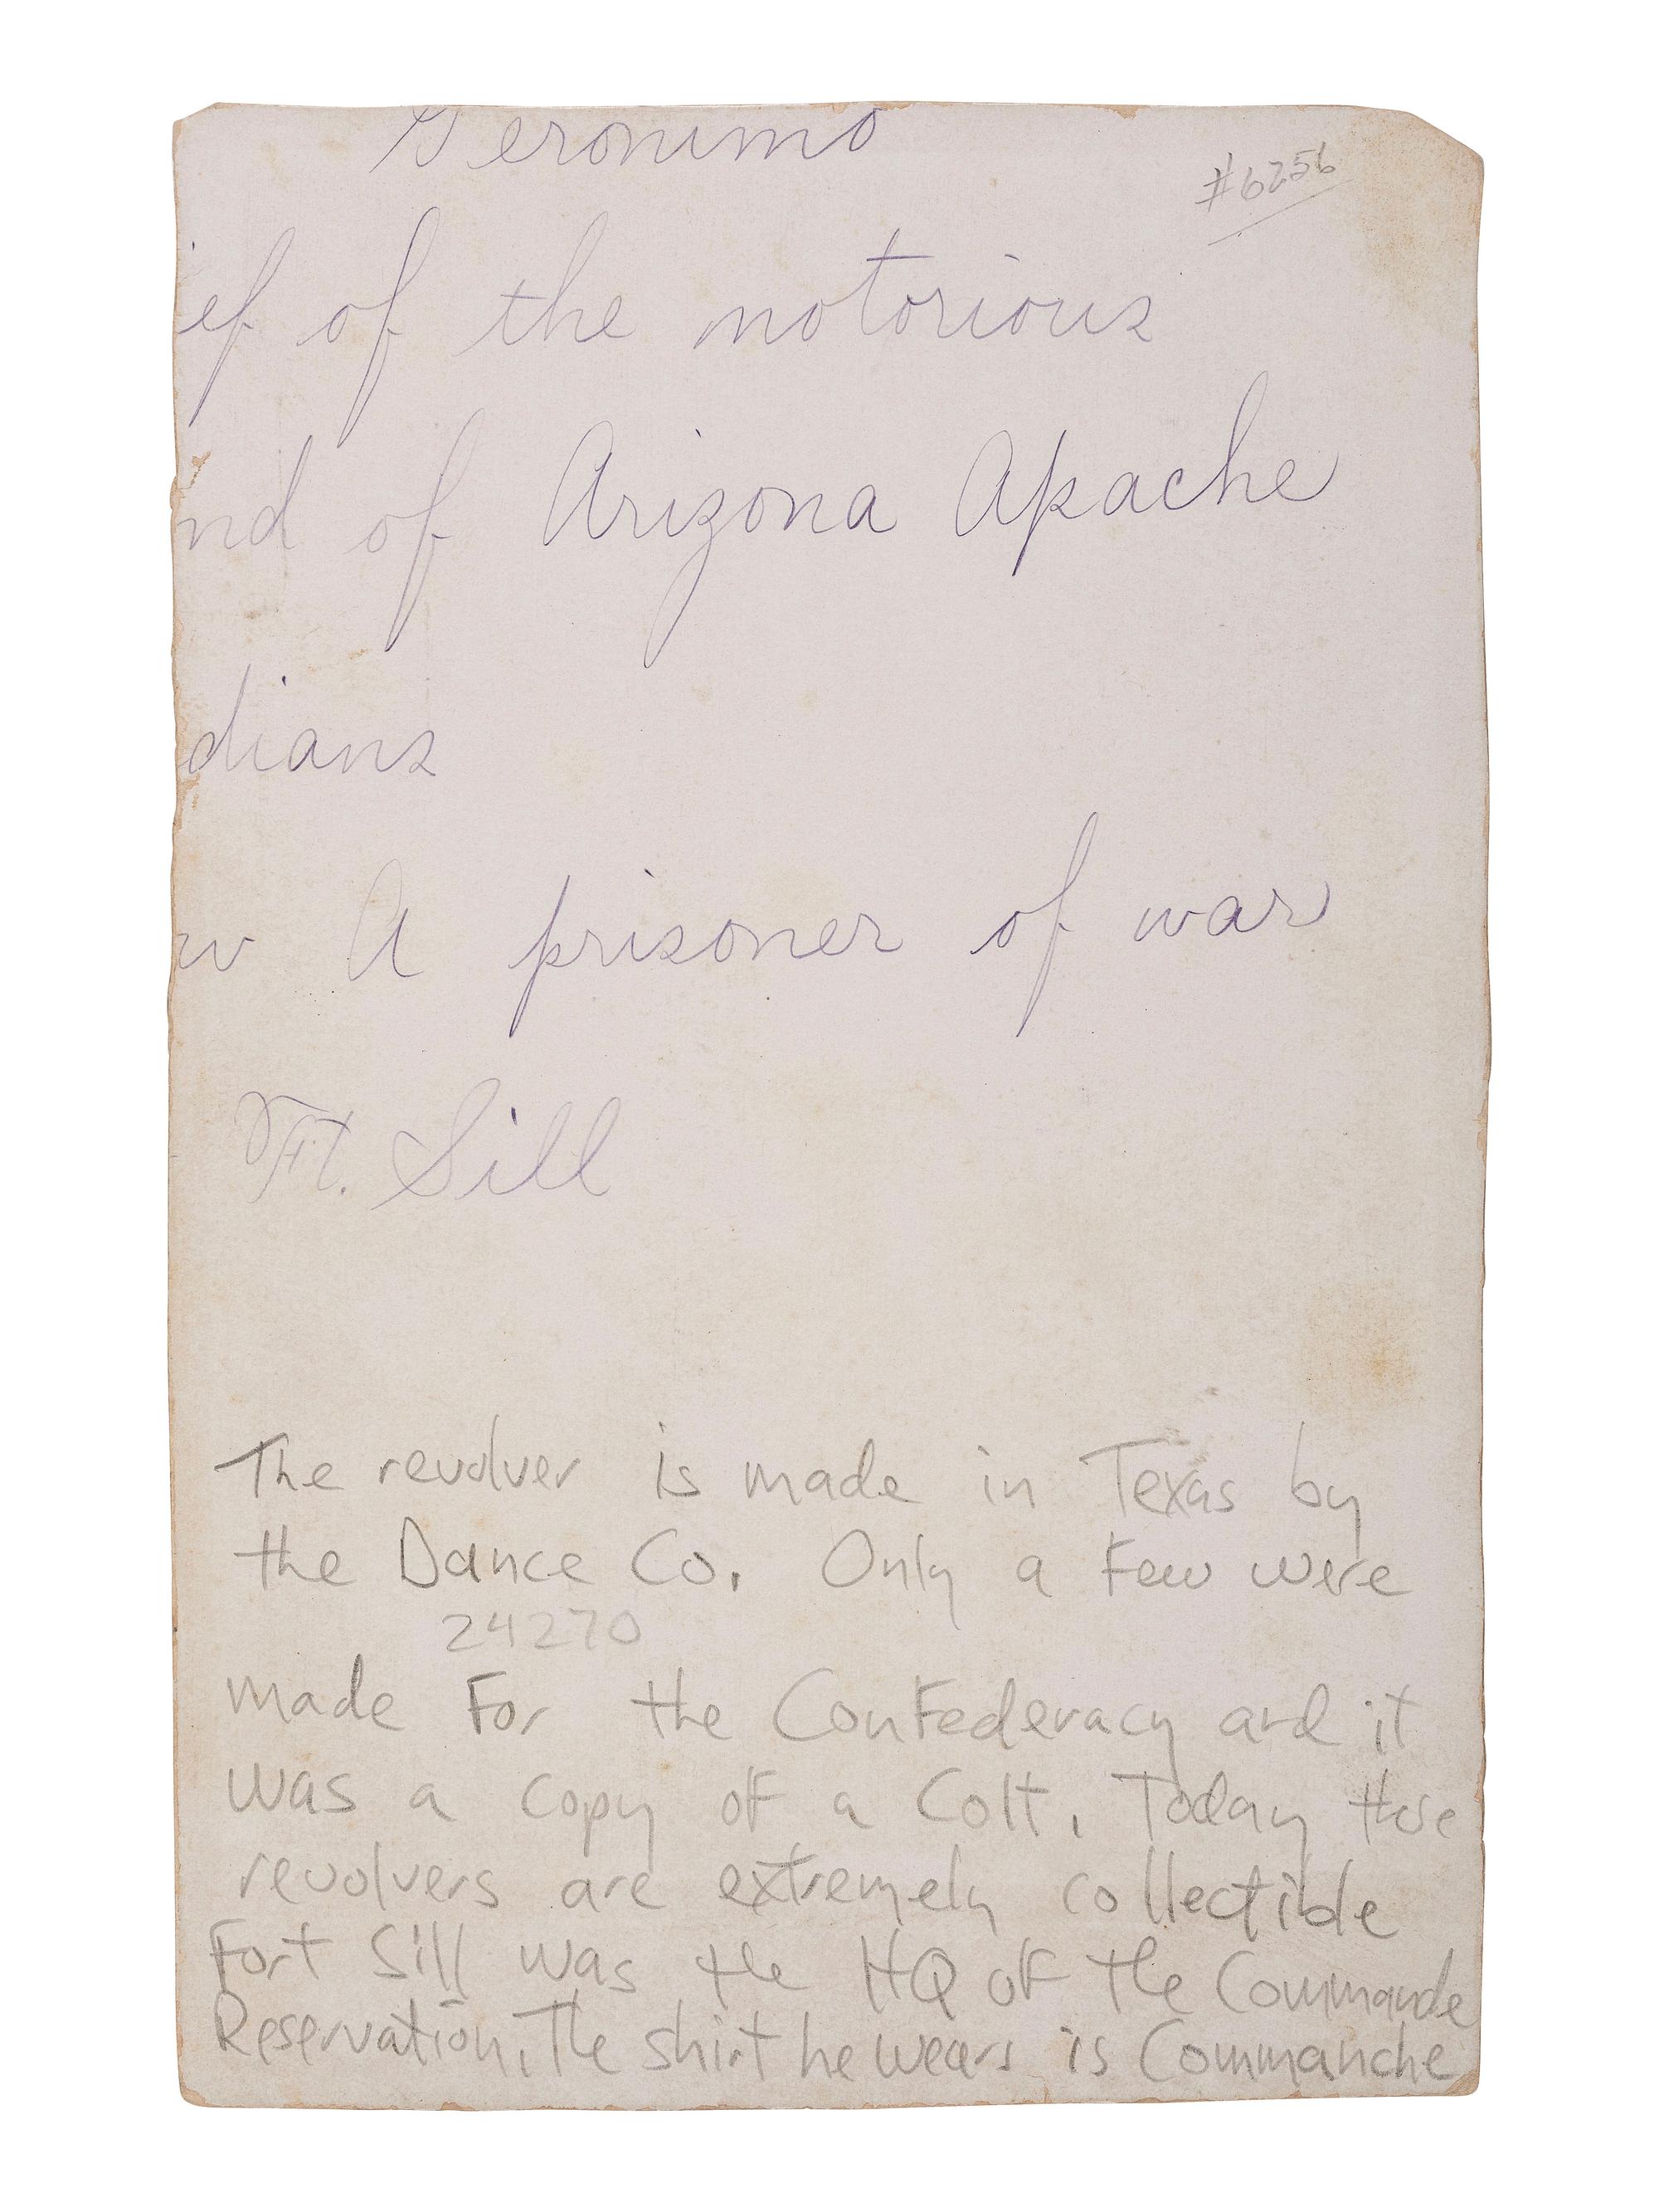 Geronimo
#6256
ef of the notorious
nd of Arizona Apache
dians
w A prisoner of war
Ft. Sill
The revolver is made in Texas by
the Dance Co. Only a Few were
24270
made For the ConFederacy and it
was a copy oF a Colt. Today these
revolvers are extremely collectible
Fort Sill was the HQ oF the Commande
Reservation. The shirt he wears is Commanche